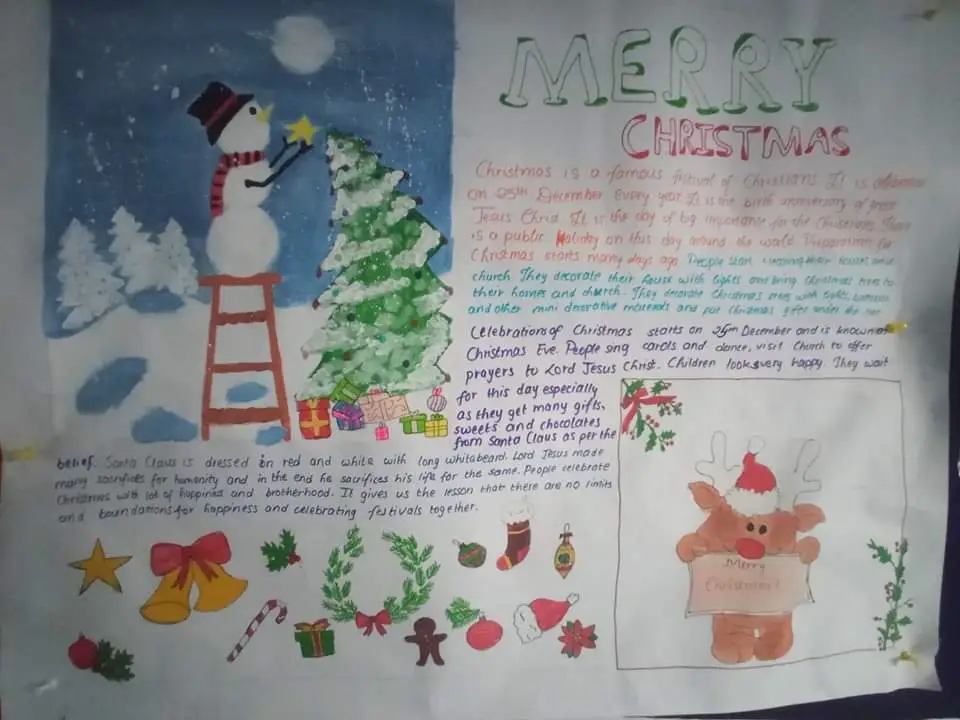 MERRY
CHRISTMAS
Christmas is a famous festival of Christians. It is
on 25th December Every year. It is the birth anniversary of
Jesus Christ. It is the day of big importance for the Christians.
is a public Holiday on this day around the world. Preparation for
Christmas starts many days ago. People start their houses and
church. They decorate their house with lights and bring Christmas trees to
their homes and church. They decorate Christmas trees with lights,
and other mini decorative materials and put Christmas gifts under the
Celebrations of Christmas starts on 25th December and is known as
Christmas Eve. People sing carols and dance, visit Church to offer
prayers to Lord Jesus Christ. Children looks very happy. They wait
for this day especially
as they get many gifts,
sweets and chocolates
from Santa Claus as per the
belief. Santa Claus is dressed in red and white with long whitebeard. Lord Jesus made
many sacrifices for humanity and in the end he sacrifices his life for the same. People celebrate
Christmas with lot of happiness and brotherhood. It gives us the lesson that there are no limits
and boundations for happiness and celebrating festivals together.
Merry
Christmas!